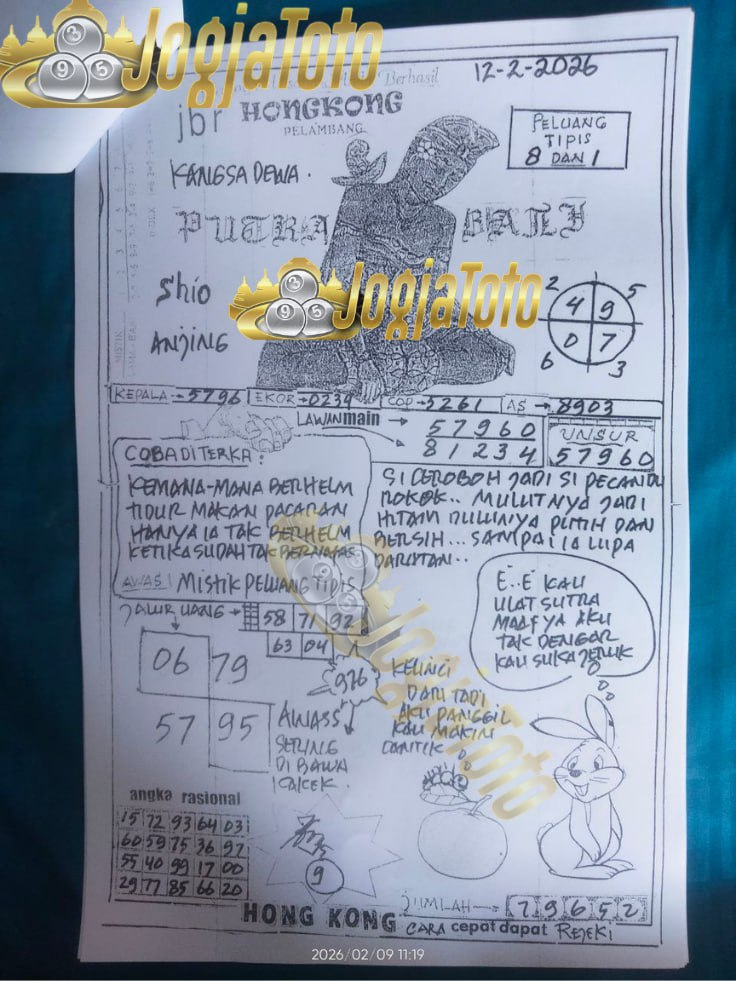 JogjaToto
Berhasil
12-2-2026
jbr HONGKONG
PELAMBANG
PELUANG
TIPIS
8 DAN 1
KANGSA DEWA.
PUTRA BALI
Shio
ANJING
JogjaToto
2 5
4 9
0 7
6 3
KEPALA → 5796 EKOR → 0234 COP → 5261 AS → 8903
LAWAN main → 57960
81234
UNSUR
57960
COBA DITERKA :
KEMANA-MANA BERHELM
TIDUR MAKAN PACARAN
HANYA IA TAK BERHELM
KETIKA SUDAH TAK BERNAFAS
AWAS! MISTIK PELUANG TIPIS
SI CEROBOH JADI SI PECANDU
ROKOK.. MULUTNYA JADI
HITAM DULUNYA PUTIH DAN
BERSIH... SAMPAI IA LUPA
DARATAN..
E..E KAU
ULAT SUTRA
MAAF YA AKU
TAK DENGAR
KAU SUKA JERUK
JALUR UANG → 58 71 92
63 04
06 79
57 95
976
AWASS
SERING
DI BAWA
KAKEK.
KELINCI
DARI TADI
AKU PANGGIL
KAU MAKIN
CANTIK
JogjaToto
angka rasional
15 72 93 64 03
60 59 75 36 97
55 40 99 17 00
29 77 85 66 20
9
JUMLAH → 7 9 6 5 2
HONG KONG CARA cepat dapat REJEKI
2026/02/09 11:19